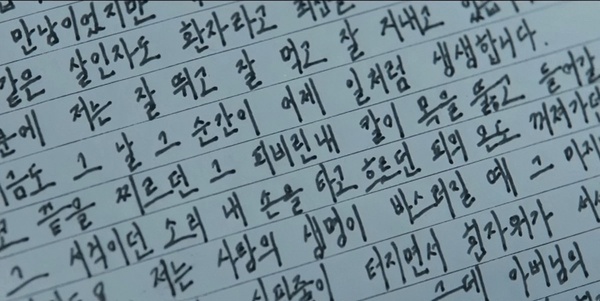 만남이었지만
같은 살인자도 환자라고 최선을
분에 저는 잘 뛰고 잘 먹고 잘 지내고 있습니
지금도 그 날 그 순간이 어제 일처럼 생생합니다.
코 끝을 찌르던 그 피비린내 칼이 목을 뚫고 들어갈
그 서걱이던 소리 내 손을 타고 흐르던 피의 온도 꺼져가던
저는 사람의 생명이 바스러질 때 그 마지
터지면서 흰자위가 서서
그때 아버님의